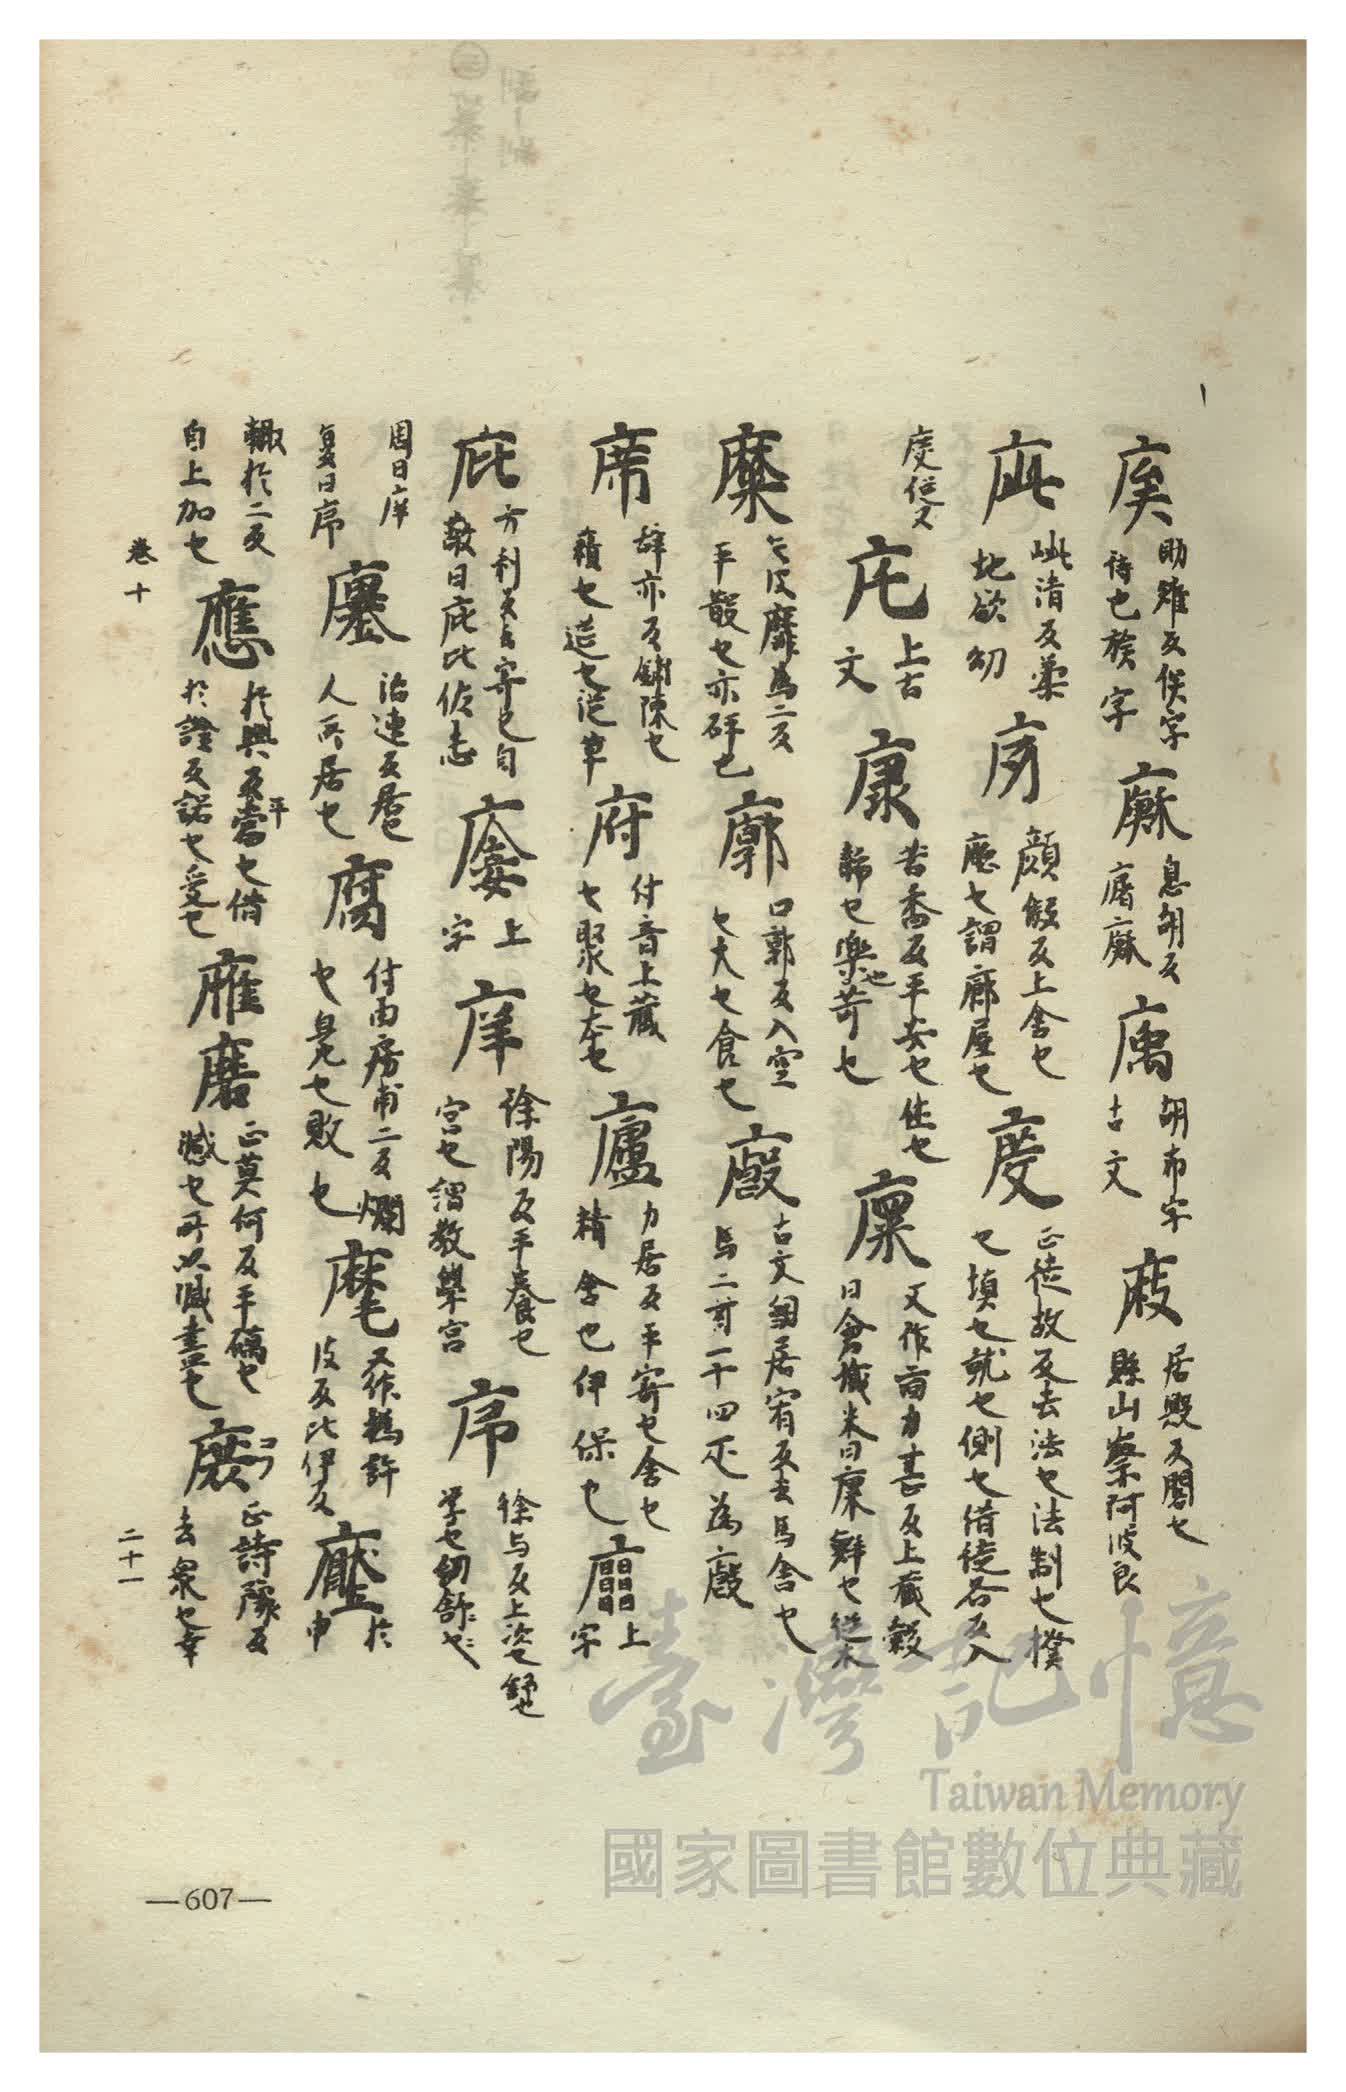 庡 助雖反俟字 待也矦字 廯 息胡反 廜廯 㢐 胡布字 古文 庪 居毀反閣也 縣山祭阿波良
㡿 此清反藥 地欲切 㡽 顏雅反上舍也 廳也謂廊屋也 度 正徒故反去法也法制也樸 也填也就也側也借徒各反入
度俗文 庑 上古 文 康 苦喬反平安也住也 歸也樂也苛也 廩 又作㐭力甚反上藏穀 曰倉藏米曰廩鮮也從木
糜 亡皮靡為二反 平散也亦碎也 廓 口郭反入空 也大也倉也 廄 古文 居宥反去馬舍也 馬二百一十四疋為廄
席 辞亦反鋪陳也 籍也莚也從草 府 付音上藏 也聚也本也 廬 力居反平寄也舍也 精舍也伊保也 㢚 上 字
庇 方利反去寄也自 敢曰庇比佐志 㢘 上 字 庠 徐陽反平養也 宮也謂教學宮 序 徐与反上次也舒也 学也 舒也
周曰庠 夏曰序 廛 治連反居也 人所居也 腐 付南房甫二反爛 也臭也敗也 麾 又作 許 皮反比伊反 壓 於 申
輙於二反 自上加也 應 於興反當平也借 於證反諾也受也 雁 磨 正莫何反平礪也 滅也所以滅盡也 庶 コフ 正詩豫反 去衆也幸
卷十
二十一
—607—
臺灣記憶
Taiwan Memory
國家圖書館數位典藏